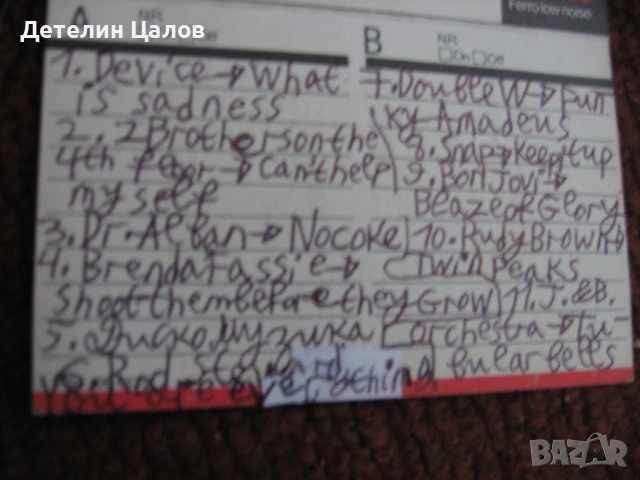 Детелин Цалов
Ferro low noise
A
NR
Off
1. Device → What
is sadness
2. 2 Brothers on the
4th floor → Can'thelp
myself
3. Dr. Alban → Nocoke
4. Brenda Fassie →
Shootthembefore they Grow
5. Диско музика
6. Rod Steward
You are everything
B
NR
On Off
7. Double W → Fun
ky Amadeus
8. Snap → Keepitup
9. Bon Jovi →
Blazeof Glory
10. Rudy Brown →
Twin Peaks
11. J. &B.
orchestra → Tu-
bular bells
BAZAR